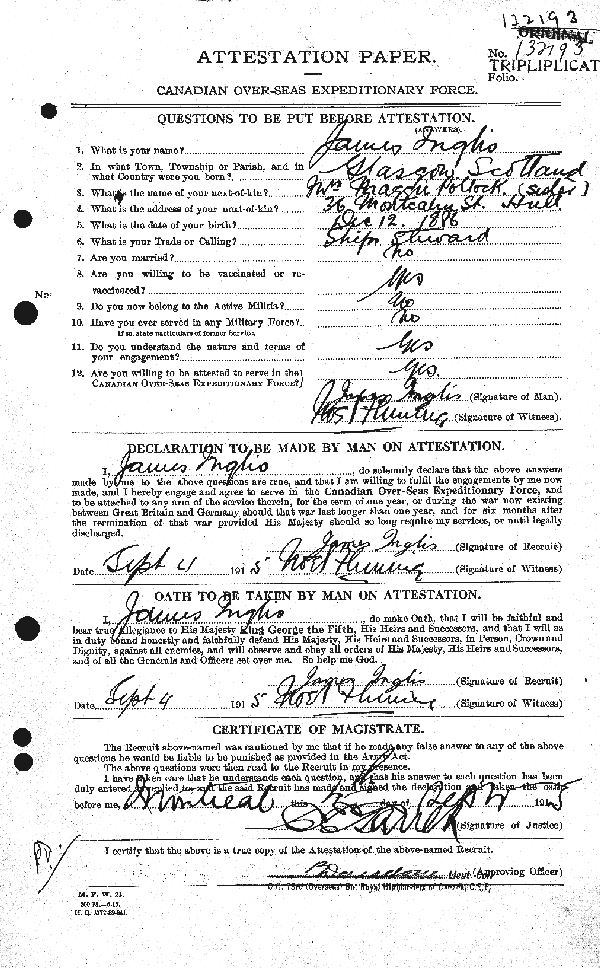 132193
ORIGINAL
No. 132193
ATTESTATION PAPER.
TRIPLIPLICAT
Folio.
CANADIAN OVER-SEAS EXPEDITIONARY FORCE.
QUESTIONS TO BE PUT BEFORE ATTESTATION.
(ANSWERS)
1. What is your name? James Inglis
2. In what Town, Township or Parish, and in
what Country were you born? Glasgow, Scotland
3. What is the name of your next-of-kin? Mrs Maggie Pollock. (sister)
4. What is the address of your next-of-kin? 36 Montcalm St. Hull
5. What is the date of your birth? Dec 12. 1886
6. What is your Trade or Calling? Ships Steward
7. Are you married? No
8. Are you willing to be vaccinated or re-
vaccinated? Yes
9. Do you now belong to the Active Militia? No
10. Have you ever served in any Military Force? No
If so, state particulars of former Service.
11. Do you understand the nature and terms of
your engagement? Yes
12. Are you willing to be attested to serve in the
CANADIAN OVER-SEAS EXPEDITIONARY FORCE? Yes.
James Inglis (Signature of Man).
(Signature of Witness).
No.
DECLARATION TO BE MADE BY MAN ON ATTESTATION.
I, James Inglis, do solemnly declare that the above answers
made by me to the above questions are true, and that I am willing to fulfil the engagements by me now
made, and I hereby engage and agree to serve in the Canadian Over-Seas Expeditionary Force, and
to be attached to any arm of the service therein, for the term of one year, or during the war now existing
between Great Britain and Germany should that war last longer than one year, and for six months after
the termination of that war provided His Majesty should so long require my services, or until legally
discharged.
James Inglis (Signature of Recruit)
Date Sept 4 1915 (Signature of Witness)
OATH TO BE TAKEN BY MAN ON ATTESTATION.
I, James Inglis, do make Oath, that I will be faithful and
bear true Allegiance to His Majesty King George the Fifth, His Heirs and Successors, and that I will as
in duty bound honestly and faithfully defend His Majesty, His Heirs and Successors, in Person, Crown and
Dignity, against all enemies, and will observe and obey all orders of His Majesty, His Heirs and Successors,
and of all the Generals and Officers set over me. So help me God.
James Inglis (Signature of Recruit)
Date Sept 4 1915 (Signature of Witness)
CERTIFICATE OF MAGISTRATE.
The Recruit above-named was cautioned by me that if he made any false answer to any of the above
questions he would be liable to be punished as provided in the Army Act.
The above questions were then read to the Recruit in my presence.
I have taken care that he understands each question, and that his answer to each question has been
duly entered as replied to, and the said Recruit has made and signed the declaration and taken the oath
before me, Montreal this day of Sept 1915
(Signature of Justice)
I certify that the above is a true copy of the Attestation of the above-named Recruit.
Lieut-Col. (Approving Officer)
O.C. 73rd (Overseas) Bn. Royal Highlanders of Canada, C.E.F.
M. F. W. 23.